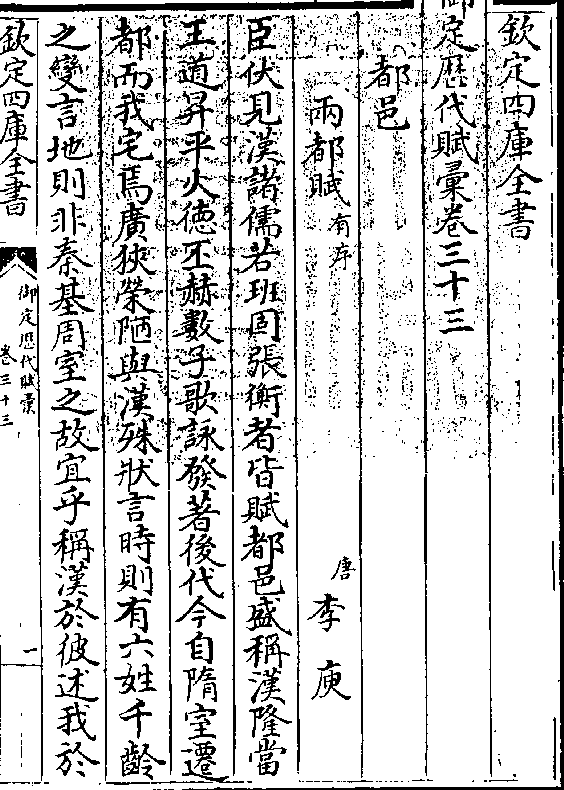 欽定四庫全書
御定歷代賦彙卷三十三
都邑
兩都賦有序
唐李庾
臣伏見漢諸儒若班固張衡者皆賦都邑盛稱漢隆當
王道昇平火德丕赫數子歌詠發著後代今自隋室遷
都而我宅焉廣狹榮陋與漢殊狀言時則有六姓千齡
之變言地則非秦基周室之故宜乎稱漢於彼述我於
欽定四庫全書
御定歷代賦彙
卷三十三
一